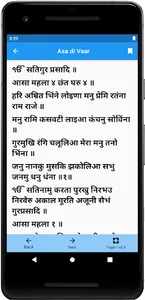 8:59
Asa di Vaar
ੴ सतिगुर प्रसादि ॥
आसा महला ४ छंत घरु ४ ॥
हरि अम्रित भिंने लोइणा मनु प्रेमि रतंना
राम राजे ॥
मनु रामि कसवटी लाइआ कंचनु सोविंना
॥
गुरमुखि रंगि चलूलिआ मेरा मनु तनो
भिंना ॥
जनु नानकु मुसकि झकोलिआ सभु
जनमु धनु धंना ॥१॥
ੴ सतिनामु करता पुरखु निरभउ
निरवैरु अकाल मूरति अजूनी सैभं
गुरप्रसादि ॥
आसा महला १ ॥
Back
Next